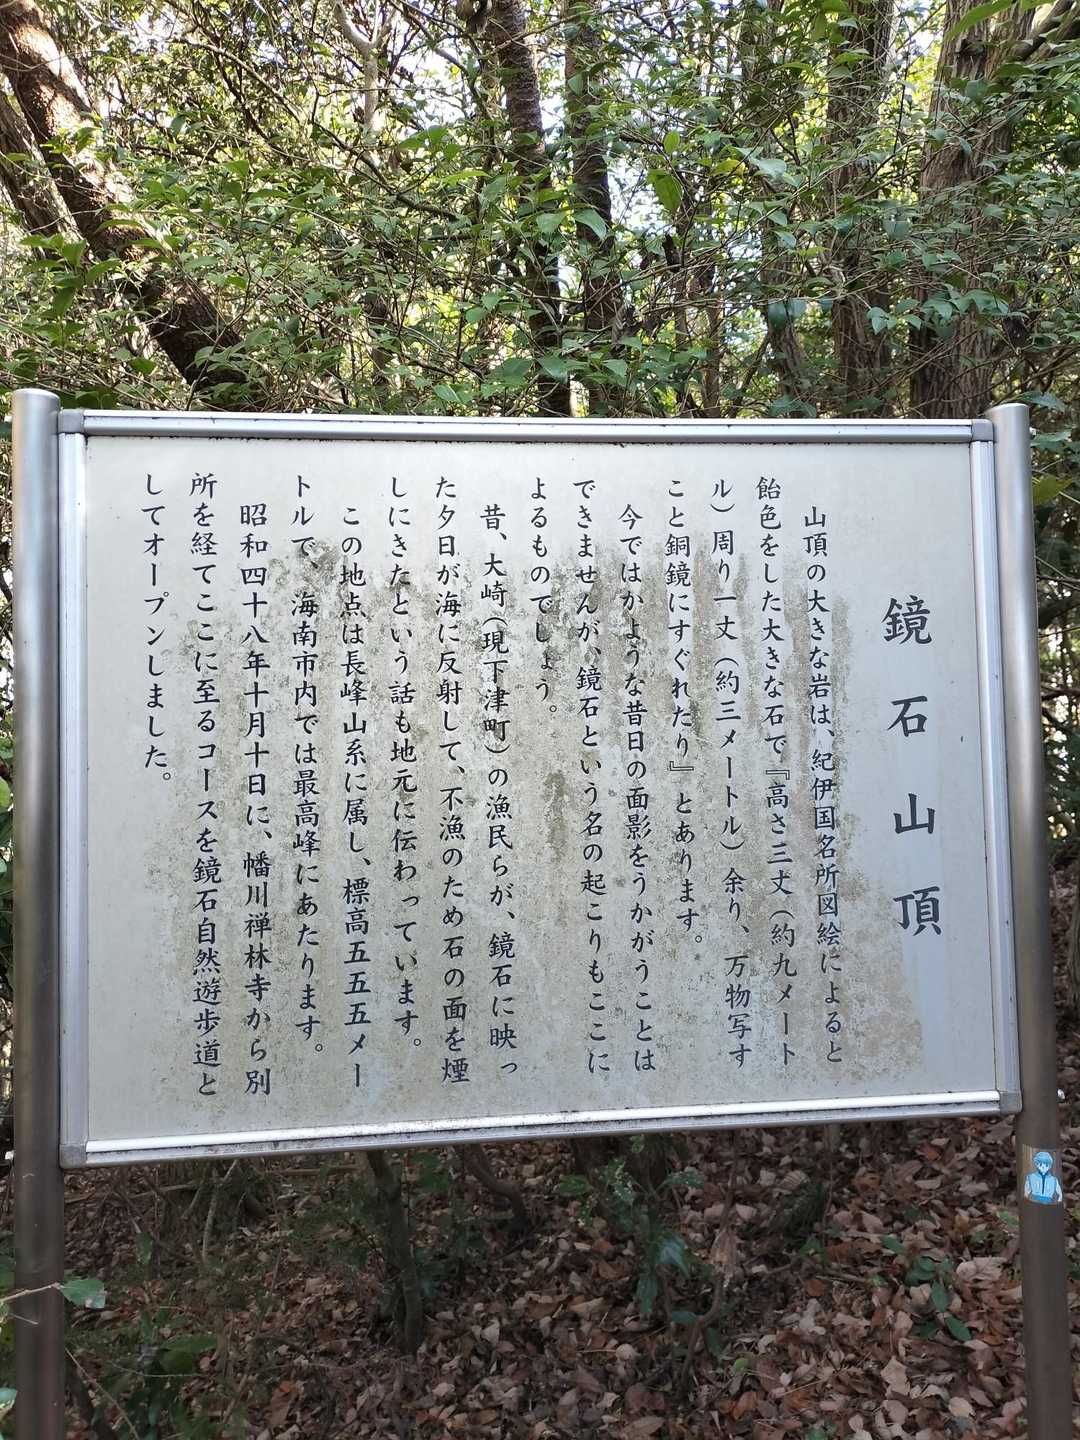 鏡石山頂
山頂の大きな岩は、紀伊国名所図絵によると
飴色をした大きな石で『高さ三丈（約九メート
ル）周り一丈（約三メートル）余り、万物写す
こと銅鏡にすぐれたり』とあります。
今ではかような昔日の面影をうかがうことは
できませんが、鏡石という名の起こりもここに
よるものでしょう。
昔、大崎（現下津町）の漁民らが、鏡石に映っ
た夕日が海に反射して、不漁のため石の面を煙
しにきたという話も地元に伝わっています。
この地点は長峰山系に属し、標高五五五メー
トルで、海南市内では最高峰にあたります。
昭和四十八年十月十日に、幡川禅林寺から別
所を経てここに至るコースを鏡石自然遊歩道と
してオープンしました。